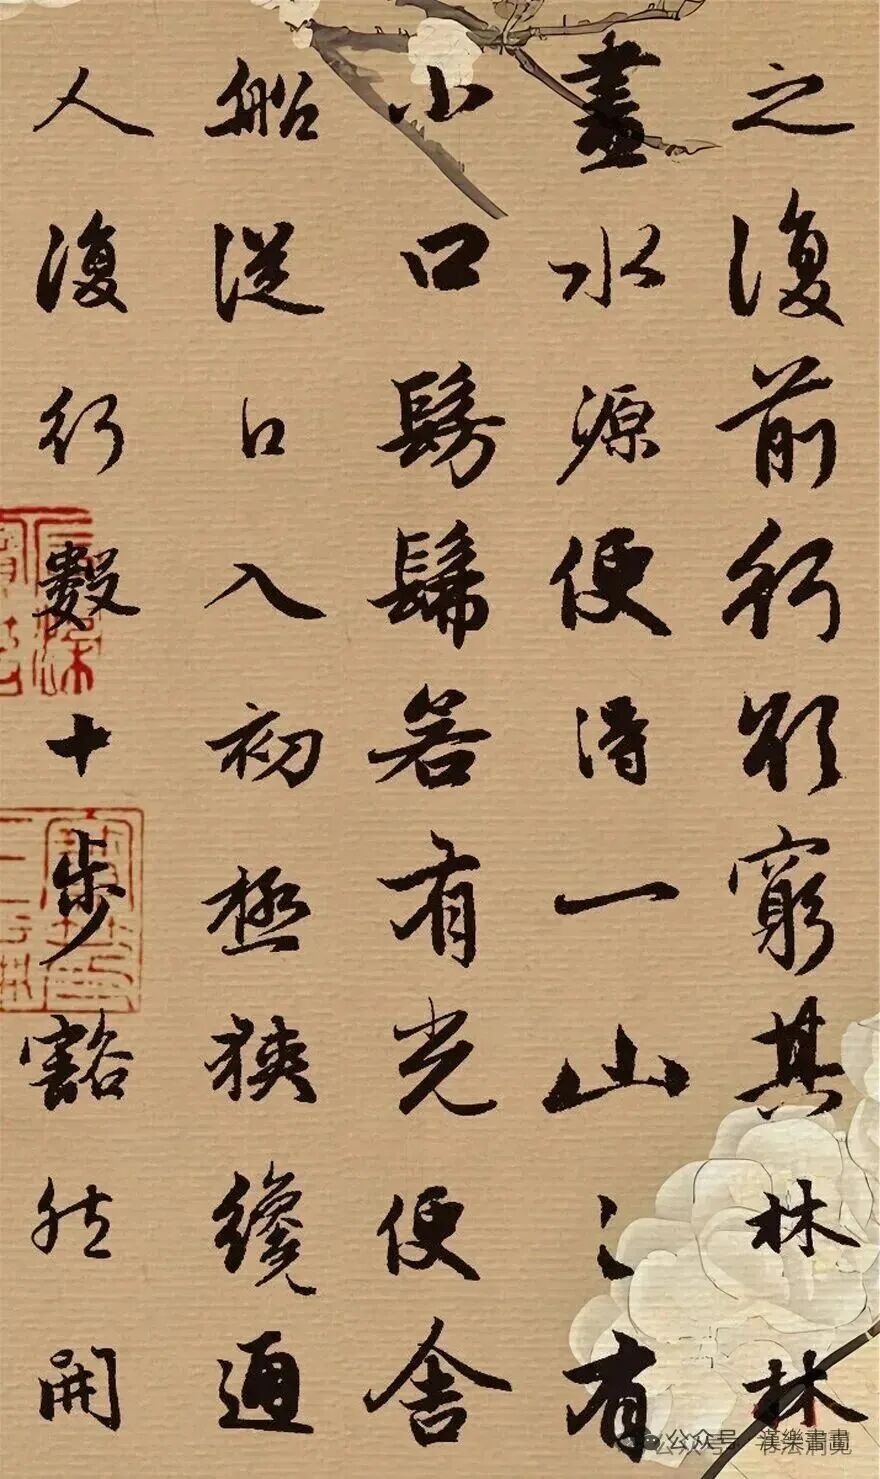 之復前行欲窮其林林
盡水源便得一山〻有
小口髣髴若有光便舍
船從口入初極狹纔通
人復行數十步豁然開
公众号 漢樂書畫